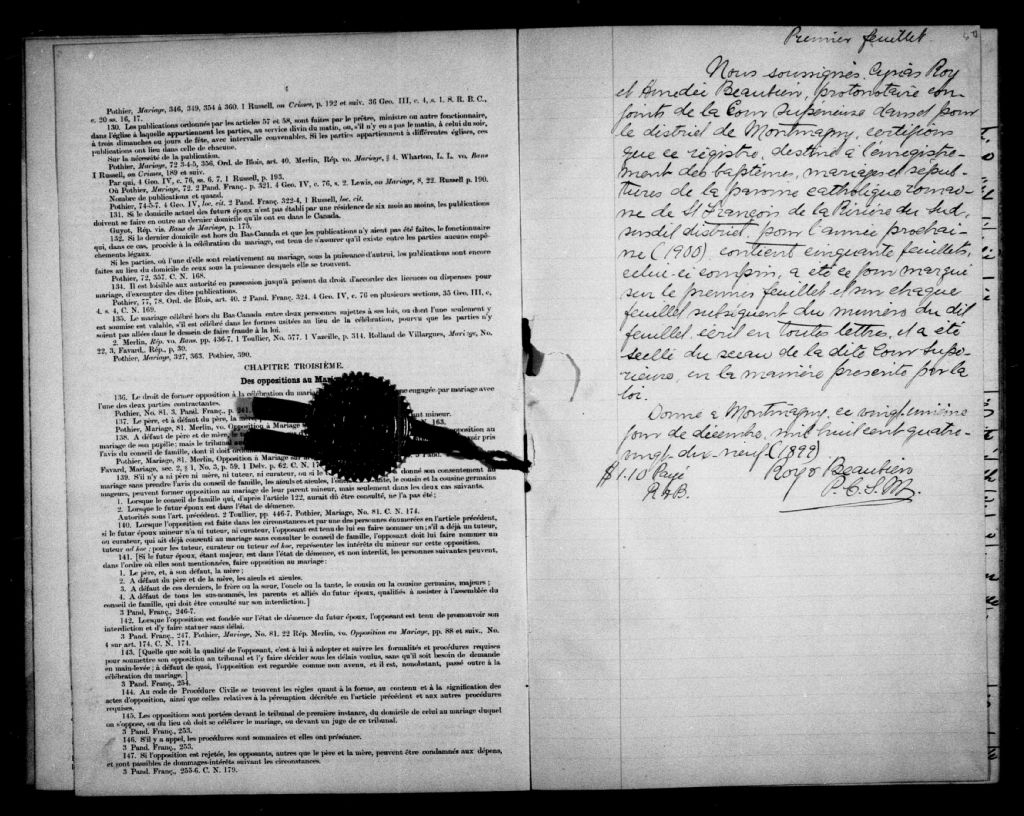 4
Pothier, Mariage, 346, 349, 354 à 360. 1 Russell, on Crimes, p. 192 et suiv. 36 Geo. III, c. 4, s. 1. S. R. B. C.,
c. 20 ss. 16, 17.
130. Les publications ordonnées par les articles 57 et 58, sont faites par le prêtre, ministre ou autre fonctionnaire,
dans l'église à laquelle appartiennent les parties, au service divin du matin, ou, s'il n'y en a pas le matin, à celui du soir,
à trois dimanches ou jours de fête, avec intervalle convenables. Si les parties appartiennent à différentes églises, ces
publications ont lieu dans celle de chacune.
Sur la nécessité de la publication.
Pothier, Mariage, 72 3-4-5, 356. Ord. de Blois, art. 40. Merlin, Rép. vo. Mariage, § 4. Wharton, L. L. vo. Bans
1 Russell, on Crimes, 189 et suiv.
Par qui, 4 Geo. IV, c. 76, ss. 6, 7. 1 Russell, p. 193.
Où Pothier, Mariage, 72. 2 Pand. Franç., p. 321. 4 Geo. IV, c. 76, s. 2. Lewis, on Mariage, 8, 22. Russell p. 190.
Nombre de publications et quand.
Pothier, 74-5-7. 4 Geo IV, loc. cit. 2 Pand. Franç. 322-4, 1 Russell, loc. cit.
131. Si le domicile actuel des futurs époux n'est pas établi par une résidence de six mois au moins, les publications
doivent se faire en outre au dernier domicile qu'ils ont eu dans le Canada.
Guyot, Rép. vis. Bans de Mariage, p. 175.
132. Si la dernier domicile est hors du Bas-Canada et que les publications n'y aient pas été faites, le fonctionnaire
qui, dans ce cas, procède à la célébration du mariage, est tenu de s'assurer qu'il existe entre les parties aucuns empê-
chements légaux.
Si les parties, où l'une d'elle sont relativement au mariage, sous la puissance d'autrui, les publications sont encore
faites au lieu du domicile de ceux sous la puissance desquels elle se trouvent.
Pothier, 72, 357. C. N. 168.
134. Il est loisible aux autorité en possession jusqu'à présent du droit d'accorder des licences ou dispenses pour
mariage, d'exempter des dites publications.
Pothier, 77, 78. Ord. de Blois, art. 40. 2 Pand. Franç. 324. 4 Geo. IV, c. 76 en plusieurs sections, 35 Geo. III, c,
4, s. 4, C. N. 169.
135. Le mariage célébré hors du Bas-Canada entre deux personnes sujettes à ses lois, ou dont l'une seulement y
est soumise est valable, s'il est célébré dans les formes usitées au lieu de la célébration, pourvu que les parties n'y
soient pas allées dans le dessein de faire fraude à la loi.
2. Merlin, Rép. vo. Bans, pp. 436-7. 1 Toullier, No. 577. 1 Vazeille, p. 314. Rolland de Villargues, Mariage, No.
22, 3, Favard., Rép., p, 39.
Pothier, Mariage, 327, 363. Pothier, 390.
CHAPITRE TROISIÈME.
Des oppositions au Mar
136. Le droit de former opposition à la célébration du mari engagée par mariage avec
l'une des deux parties contractantes.
Pothier, No. 81. 3. Pand. Franç., p. 241.
137. Le père, et à défaut du père, la mère ant mineur.
Pothier, Mariage, 81. Merlin, vo. Opposition à Mariage 163.
138. A défaut de père et de mère, voir pris
mariage de son pupille; mais le tribunal
l'avis du conseil de famille, dont il doit
Pothier, Mariage, 81, Merlin, Opposition au Mari Pand.
Favard, Mariage, sec. 2, § 1, No. 3, p. 59. 1 Delv. p. 62. C. N. 17
139. S'il n'y a ni père, ni mère, ni tuteur, ni curateur, ou si le donné son consentement au
mariage sans prendre l'avis du conseil de famille, les aïeuls et aïeules, l'oncle la cousine germains
majeurs, peuvent former opposition au mariage de leur parent mineur, mais seulement dans les deux cas suivants.
1. Lorsque le conseil de famille qui, d'après l'article 122, aurait dû être consulté, ne l'a pas été;
2. Lorsque le futur époux est dans l'état de démence.
Autorités sous l'art. précédent. 2 Toullier, pp. 446-7. Pothier, Mariage, No. 81. C. N. 174.
140. Lorsque l'opposition est faite dans les circonstances et par une des personnes énumérées en l'article précédent,
si le futur époux mineur n'a ni tuteur, ni curateur, l'opposant est tenu de lui en faire nommer un; s'il a déjà un tuteur,
ou curateur, qui ait déjà consenti au mariage sans consulter le conseil de famille, l'opposant doit lui faire nommer un
tuteur ad hoc; pour les tuteur, curateur ou tuteur ad hoc, représenter les intérêts du mineur sur cette opposition.
141. [Si le futur époux, étant majeur, est dans l'état de démence, et non interdit, les personnes suivantes peuvent,
dans l'ordre où elles sont mentionnées, faire opposition au mariage:
1. Le père, et, à son défaut, la mère;
2. A défaut du père et de la mère, les aïeuls et aïeules.
3. A défaut de ces derniers, le frère ou la sœur, l'oncle ou la tante, le cousin ou la cousine germains, majeurs;
4. A défaut de tous les sus-nommés, les parents et alliés du futur époux, qualifiés à assister à l'assemblée du
conseil de famille, qui doit être consulté sur son interdiction.]
3 Pand, Franç., 246-7.
142. Lorsque l'opposition est fondée sur l'état de démence du futur époux, l'opposant est tenu de promouvoir son
interdiction et d'y faire statuer sans délai.
3 Pand. Franç., 247. Pothier, Mariage, No. 81. 22 Rép. Merlin, vo. Opposition au Mariage, pp. 88 et suiv., No.
4 sur art. 174. C. N. 174.
143. [Quelle que soit la qualité de l'opposant, c'est à lui à adopter et suivre les formalités et procédures requises
pour soumettre son opposition au tribunal et l'y faire décider sous les délais voulus, sans qu'il soit besoin de demande
en main-levée; à défaut de quoi, l'opposition est regardée comme non avenu, et il est, nonobstant, passé outre à la
célébration du mariage.]
3 Pand. Franç., 254.
144. Au code de Procédure Civile se trouvent les règles quant à la forme, au contenu et à la signification des
actes d'opposition, ainsi que celles relatives à la péremption décrétée en l'article précédent et aux autres procédures
requises.
145. Les oppositions sont portées devant le tribunal de première instance, du domicile de celui au mariage duquel
on s'oppose, ou du lieu où doit se célébrer le mariage, ou devant un juge de ce tribunal.
3 Pand. Franç., 253.
146. S'il y a appel, les procédures sont sommaires et elles ont préséance.
3 Pand. Franç., 253.
147. Si l'opposition est rejetée, les opposants, autres que le père et la mère, peuvent être condamnés aux dépens,
et sont passibles de dommages-intérêts suivant les circonstances.
3 Pand. Franç., 255-6. C. N. 179.
Premier feuillet
Nous soussignés, Cyprias Roy
et Amédée Beaubien, protonotaire con-
joints de la Cour Supérieure dans et pour
le district de Montmagny, certifions
que ce régistre, destiné à l'enregistre-
ment des baptêmes, mariages et sépul-
tures de la paroisse catholique romai-
ne de St François de la Rivière du Sud,
susdit district, pour l'année prochai-
ne (1900), contient cinquante feuillets,
celui-ci compris, a été ce jour marqué
sur le premier feuillet et sur chaque
feuillet subséquent du numéro du dit
feuillet écrit en toutes lettres, et a été
scellé du sceau de la dite Cour Supé-
rieure, en la manière prescrite par la
loi.
Donné à Montmagny, ce vingt-unième
jour de décembre, mil huit cent quatre-
vingt-dix-neuf (1899)
$1.10 Payé
R & B.
Roy & Beaubien
P. C. S. M.